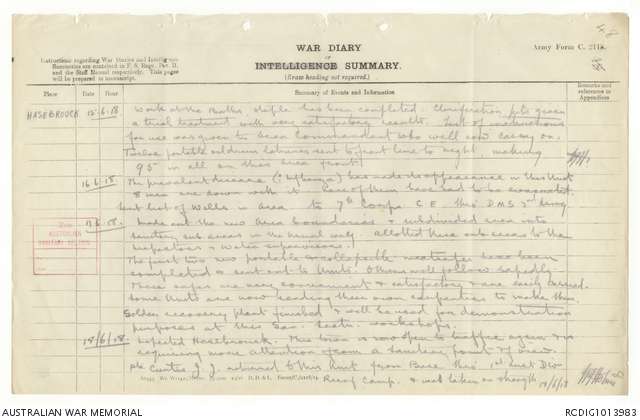 WAR DIARY
or
INTELLIGENCE SUMMARY.
(Erase heading not required.)
Army Form C. 2118.
Instructions regarding War Diaries and Intelligence
Summaries are contained in F. S. Regs., Part II.
and the Staff Manual respectively. Title pages
will be prepared in manuscript.
Place
Date
Hour
Summary of Events and Information
Remarks and
references to
Appendices
HAZEBROUCK 15.6.18 Work at the Baths has been completed. Clarification pits given
a trial treatment with very satisfactory results. List of instructions
for use was given to Area Commandant who will now carry on.
Twelve portable latrines sent to front line to night, making
95 in all on this area front.
16.6.18 The prevalent disease (? Influenza) has made its appearance in this Unit
8 men are down with it. of them have had to be evacuated.
Sent list of Wells in area to 7th Corps C.E. thro' D.M.S 2nd Army
17.6.18. Made out the new Area boundaries & subdivided area into
sanitary sub areas in the usual way. Allotted these sub areas to the
Inspectors &
The first two new portable & collapsible have been
completed & sent out to Units. Others will follow rapidly.
These are very convenient & satisfactory & are easily carried.
Some Units are now sending their own carpenters to make them.
Solder recovery plant finished & will be used for demonstration
purposes at this San. Sectn. workshops.
18/6/18 Inspected Hazebrouck. This town is now open to traffic again & is
requiring more attention from a sanitary point of view.
Pte Curtis J. J. to this Unit from Base thro' 1st Aust Divn
Recep Camp. & was taken on strength 18/6/18
AUSTRALIAN
SANITARY SECTION
AUSTRALIAN WAR MEMORIAL
RCDIG1013983